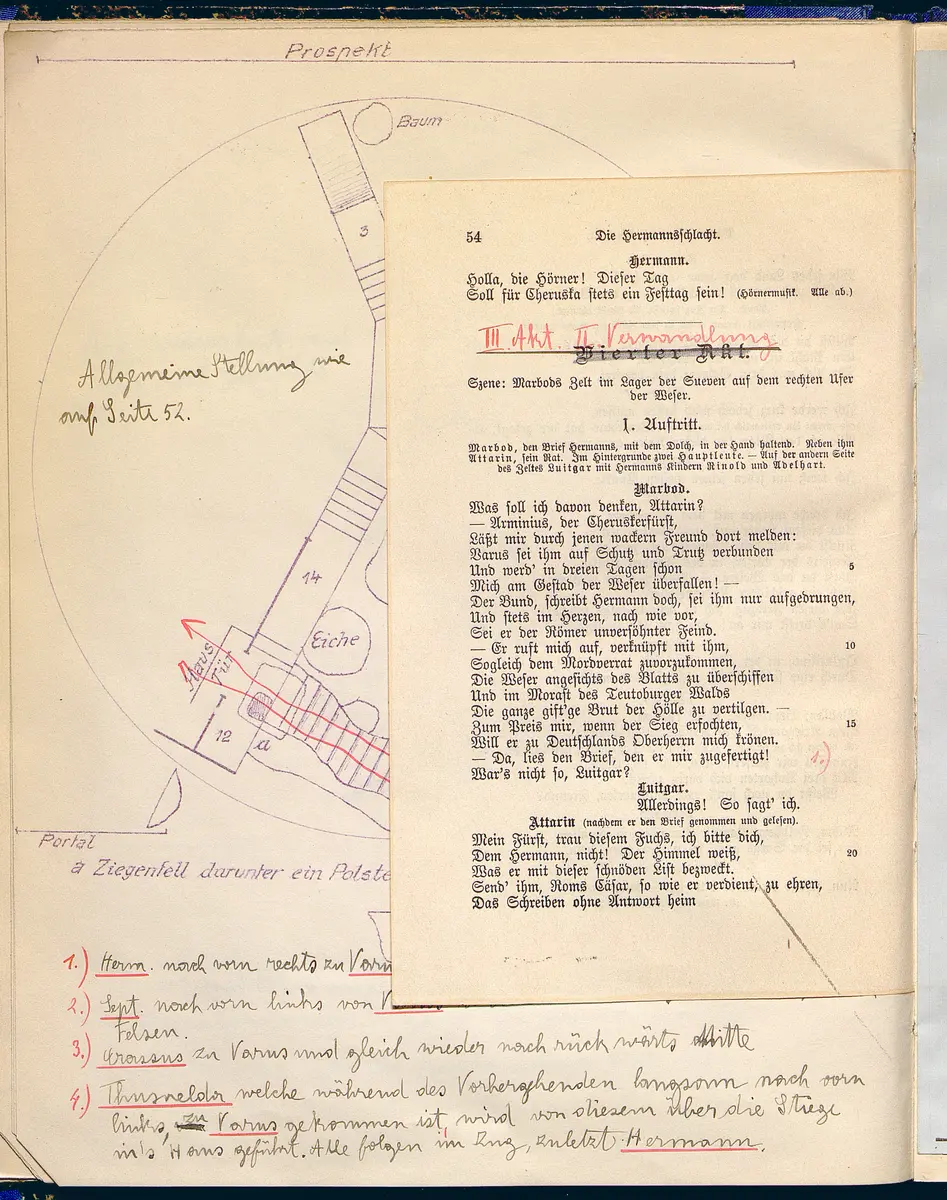 Prospekt
Baum
3
Allgemeine Stellung wie
auf Seite 52.
14
Eiche
Haus
Tür
12
a
Portal
a Ziegenfell darunter ein
54
Die Hermannsschlacht.
Hermann.
Holla, die Hörner! Dieser Tag
Soll für Cheruska stets ein Festtag sein! (Hörnermusik. Alle ab.)
III. Akt. II. Verwandlung
Vierter Akt.
Szene: Marbods Zelt im Lager der Sueven auf dem rechten Ufer
der Weser.
1. Auftritt.
Marbod, den Brief Hermanns, mit dem Dolch, in der Hand haltend. Neben ihm
Attarin, sein Rat. Im Hintergrunde zwei Hauptleute. — Auf der andern Seite
des Zeltes Luitgar mit Hermanns Kindern Rinold und Adelhart.
Marbod.
Was soll ich davon denken, Attarin?
— Arminius, der Cheruskerfürst,
Läßt mir durch jenen wackern Freund dort melden:
Varus sei ihm auf Schutz und Trutz verbunden
Und werd' in dreien Tagen schon 5
Mich am Gestad der Weser überfallen! —
Der Bund, schreibt Hermann doch, sei ihm nur aufgedrungen,
Und stets im Herzen, nach wie vor,
Sei er der Römer unversöhnter Feind.
— Er ruft mich auf, verknüpft mit ihm, 10
Sogleich dem Mordverrat zuvorzukommen,
Die Weser angesichts des Blatts zu überschiffen
Und im Morast des Teutoburger Walds
Die ganze gift'ge Brut der Hölle zu vertilgen. —
Zum Preis mir, wenn der Sieg erfochten, 15
Will er zu Deutschlands Oberherrn mich krönen.
— Da, lies den Brief, den er mir zugefertigt! 1.)
War's nicht so, Luitgar?
Luitgar.
Allerdings! So sagt' ich.
Attarin (nachdem er den Brief genommen und gelesen).
Mein Fürst, trau diesem Fuchs, ich bitte dich,
Dem Hermann, nicht! Der Himmel weiß, 20
Was er mit dieser schnöden List bezweckt.
Send' ihm, Roms Cäsar, so wie er verdient, zu ehren,
Das Schreiben ohne Antwort heim
1.) Herm. nach vorn rechts zu
2.) Sept. nach vorn links von
Felsen.
3.) Crassus zu Varus und gleich wieder nach rückwärts Mitte
4.) Thusnelda welche während des Vorhergehenden langsam nach vorn
links, zu Varus gekommen ist, wird von diesem über die Stiege
in's Haus geführt. Alle folgen im Zug, zuletzt Hermann.